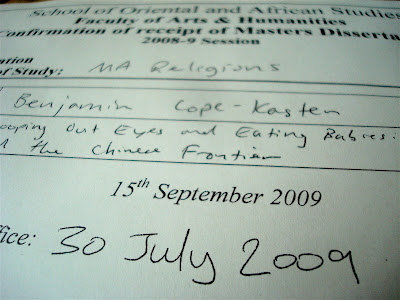 School of Oriental and African Studies
Faculty of Arts & Humanities
onfirmation of receipt of Masters Disserta
2008-9 Session
ation
of Study: MA Relegions
Benjamin Cope-Kasten
ooping Out Eyes and Eating Babies:
the Chinese Frontier
15th September 2009
fice: 30 July 2009